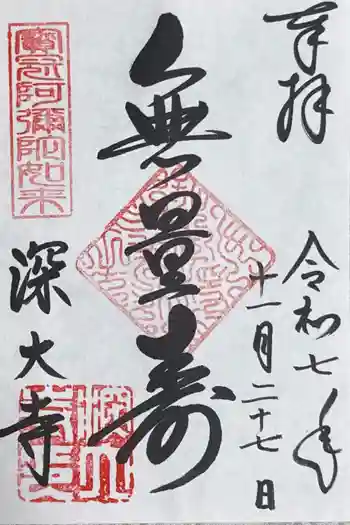 奉拝
令和七年
十一月二十七日
無量寿
寶冠阿彌陀如来
深大寺